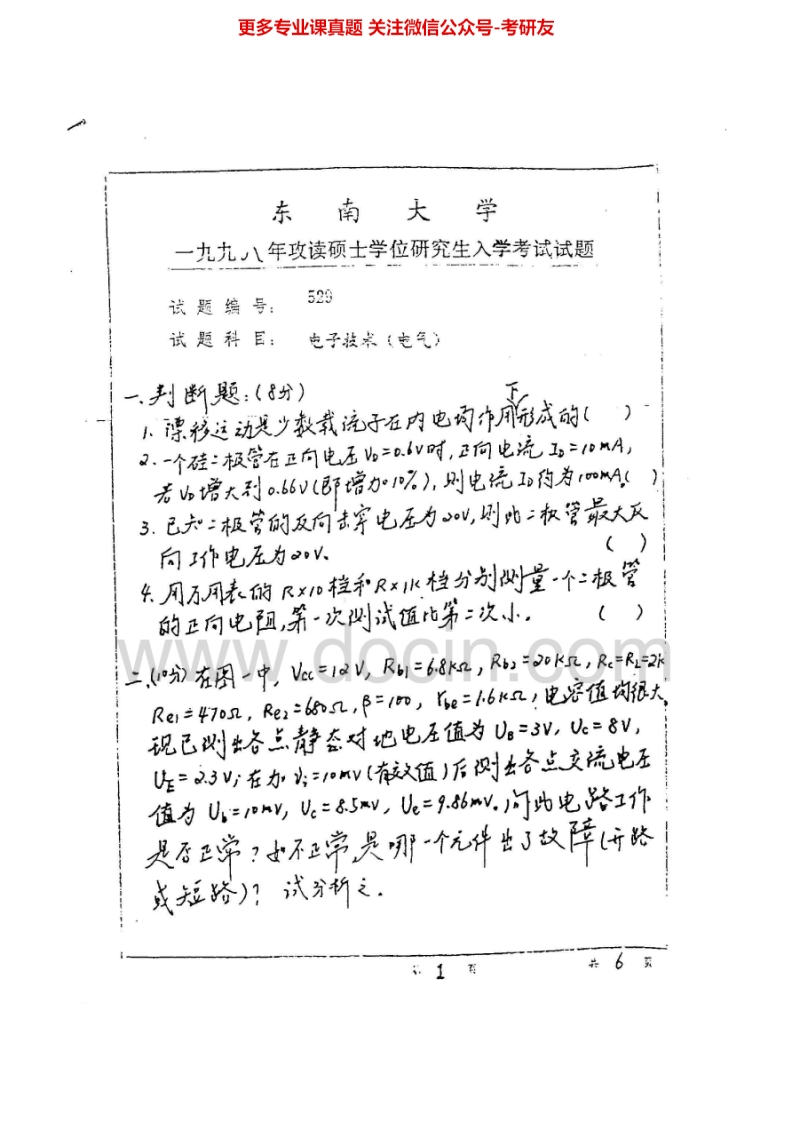 更多专业课真题 关注微信公众号-考研友
东 南 大 学
一九九八年攻读硕士学位研究生入学考试试题
试题编号: 529
试题科目: 电子技术(电气)
一、判断题:(8分)
1. 漂移运动是少数载流子在内电场作用下形成的( )
2. 一个硅二极管在正向电压VD=0.6V时,正向电流ID=10mA,
若VD增大到0.66V(即增加10%),则电流ID约为100mA。( )
3. 已知二极管的反向击穿电压为20V,则此二极管最大反
向工作电压为20V. ( )
4. 用万用表的R×10档和R×1K档分别测量一个二极管
的正向电阻,第一次测试值比第二次小. ( )
www.docin.com
二、(10分)在图一中, Vcc=12V, Rb1=6.8kΩ, Rb2=20kΩ, Rc=RL=2k
Re1=470Ω, Re2=680Ω, β=100, rbe=1.6kΩ,电容值均很大,
现已测出各点静态对地电压值为UB=3V, Uc=8V,
UE=2.3V;在加vi=10mV(有效值)后测出各点交流电压
值为Ub=10mV, Uc=8.5mV, Ue=9.86mV.问此电路工作
是否正常?如不正常,是哪一个元件出了故障(开路
或短路)? 试分析之.
1 页 共 6 页